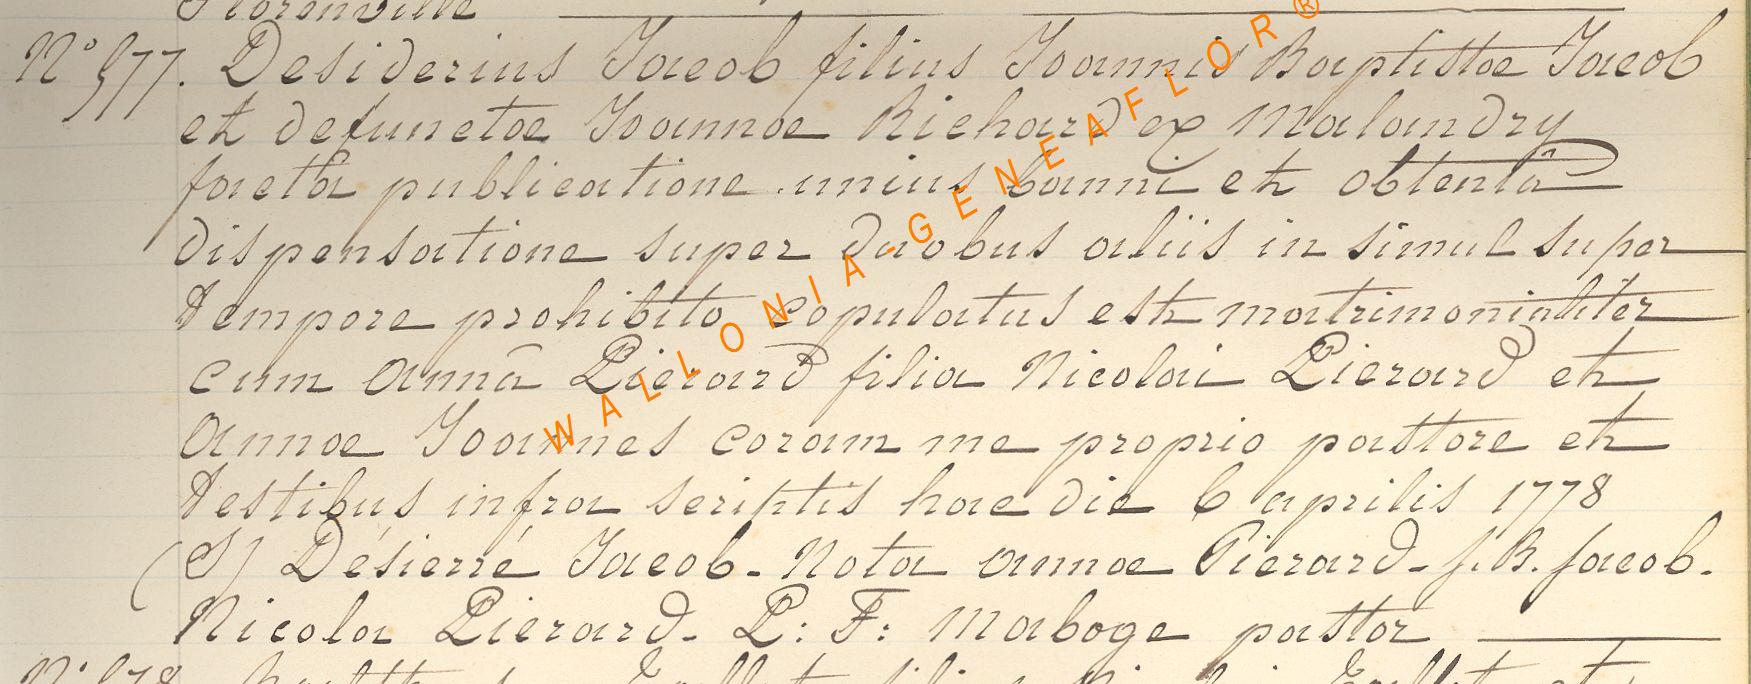 Florenville
N° 977. Desiderius Jacob filius Joannis Baptistae Jacob
et defunctae Joannae Richard ex Malandry
factâ publicatione unius banni et obtentâ
dispensatione super duobus aliis in simul super
tempore prohibito copulatus est matrimonialiter
cum Annâ Pierard filia Nicolai Pierard et
Annae Joannes coram me proprio pastore et
testibus infra scriptis hac die 6 aprilis 1778
(S) Désierré Jacob - Nota annae Pierard - J. B. Jacob.
Nicola Pierard - P: F: Maboge pastor
WALLONIA-GENEAFLOR®